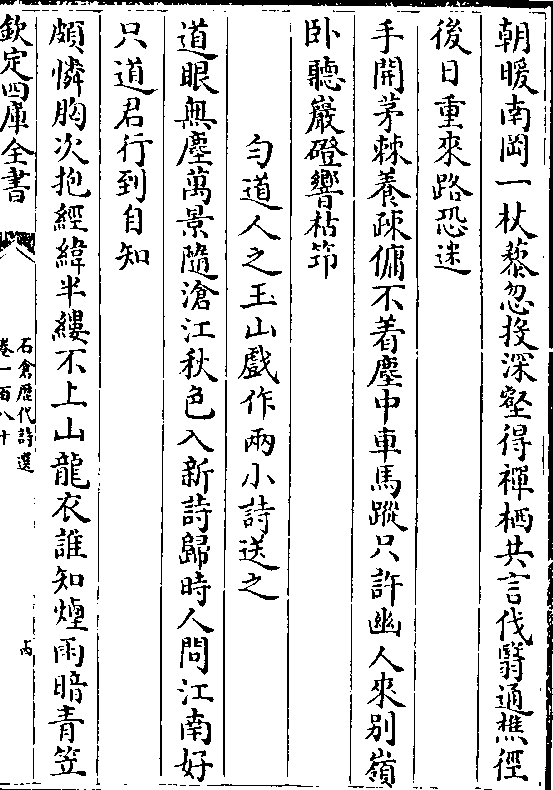 朝暖南岡一杖藜忽投深壑得禪栖共言伐翳通樵徑
後日重來路恐迷
手開茅棘養疎傭不着塵中車馬蹤只許幽人來别嶺
卧聽巖磴響枯笻
勻道人之玉山戲作兩小詩送之
道眼無塵萬景隨滄江秋色入新詩歸時人問江南好
只道君行到自知
頗憐胸次抱經緯半縷不上山龍衣誰知煙雨暗青笠
欽定四庫全書
石倉歴代詩選
卷一百八十